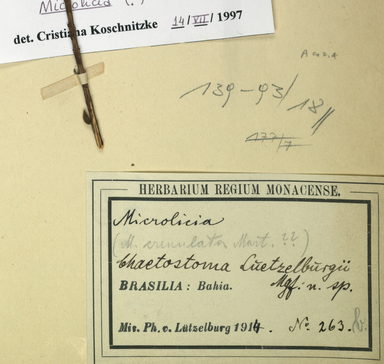 Microlicia (?)
det. Cristiana Koschnitzke 14/VII/1997
139-93/18
177/7
HERBARIUM REGIUM MONACENSE.
Microlicia
(M. crenulata Mart. ??)
Chaetostoma Luetzelburgii
BRASILIA: Bahia. Mgf. n. sp.
Mis. Ph. v. Lützelburg 1914. No. 263. b.